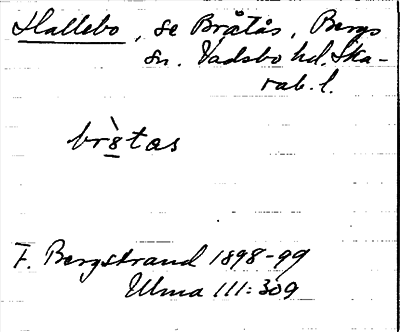 Hallebo, se Bråtås, Bergs
sn. Vadsbo hd. Ska-
rab. l.
br̀8tas
F. Bergstrand 1898-99
Ulma 111:309